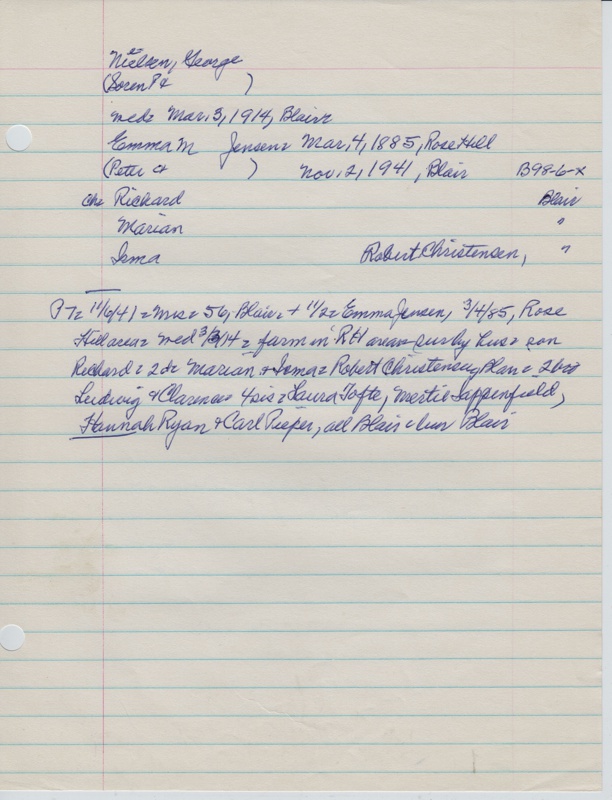 Nielsen, George
(Soren P &          )
wed= Mar. 3, 1914, Blair
Emma M   Jensen= Mar. 4, 1885, Rose Hill
(Peter &          )   Nov. 2, 1941, Blair   B98-6-x
ch= Richard   Blair
Marian   "
Irma   Robert Christensen,   "
PT= 11/6/41= Mrs= 56, Blair= + 11/2= Emma Jensen, 3/4/85, Rose
Hill area= wed 3/3/14= farm in RH area= sur by hus= son
Richard= 2 d= Marian + Irma= Robert Christensen, Blair= 2 bro=
Ludwig + Clarence= 4 sis= Laura Tofte, Mertie Sappenfield,
Hannah Ryan + Carl Pieper, all Blair= bur Blair